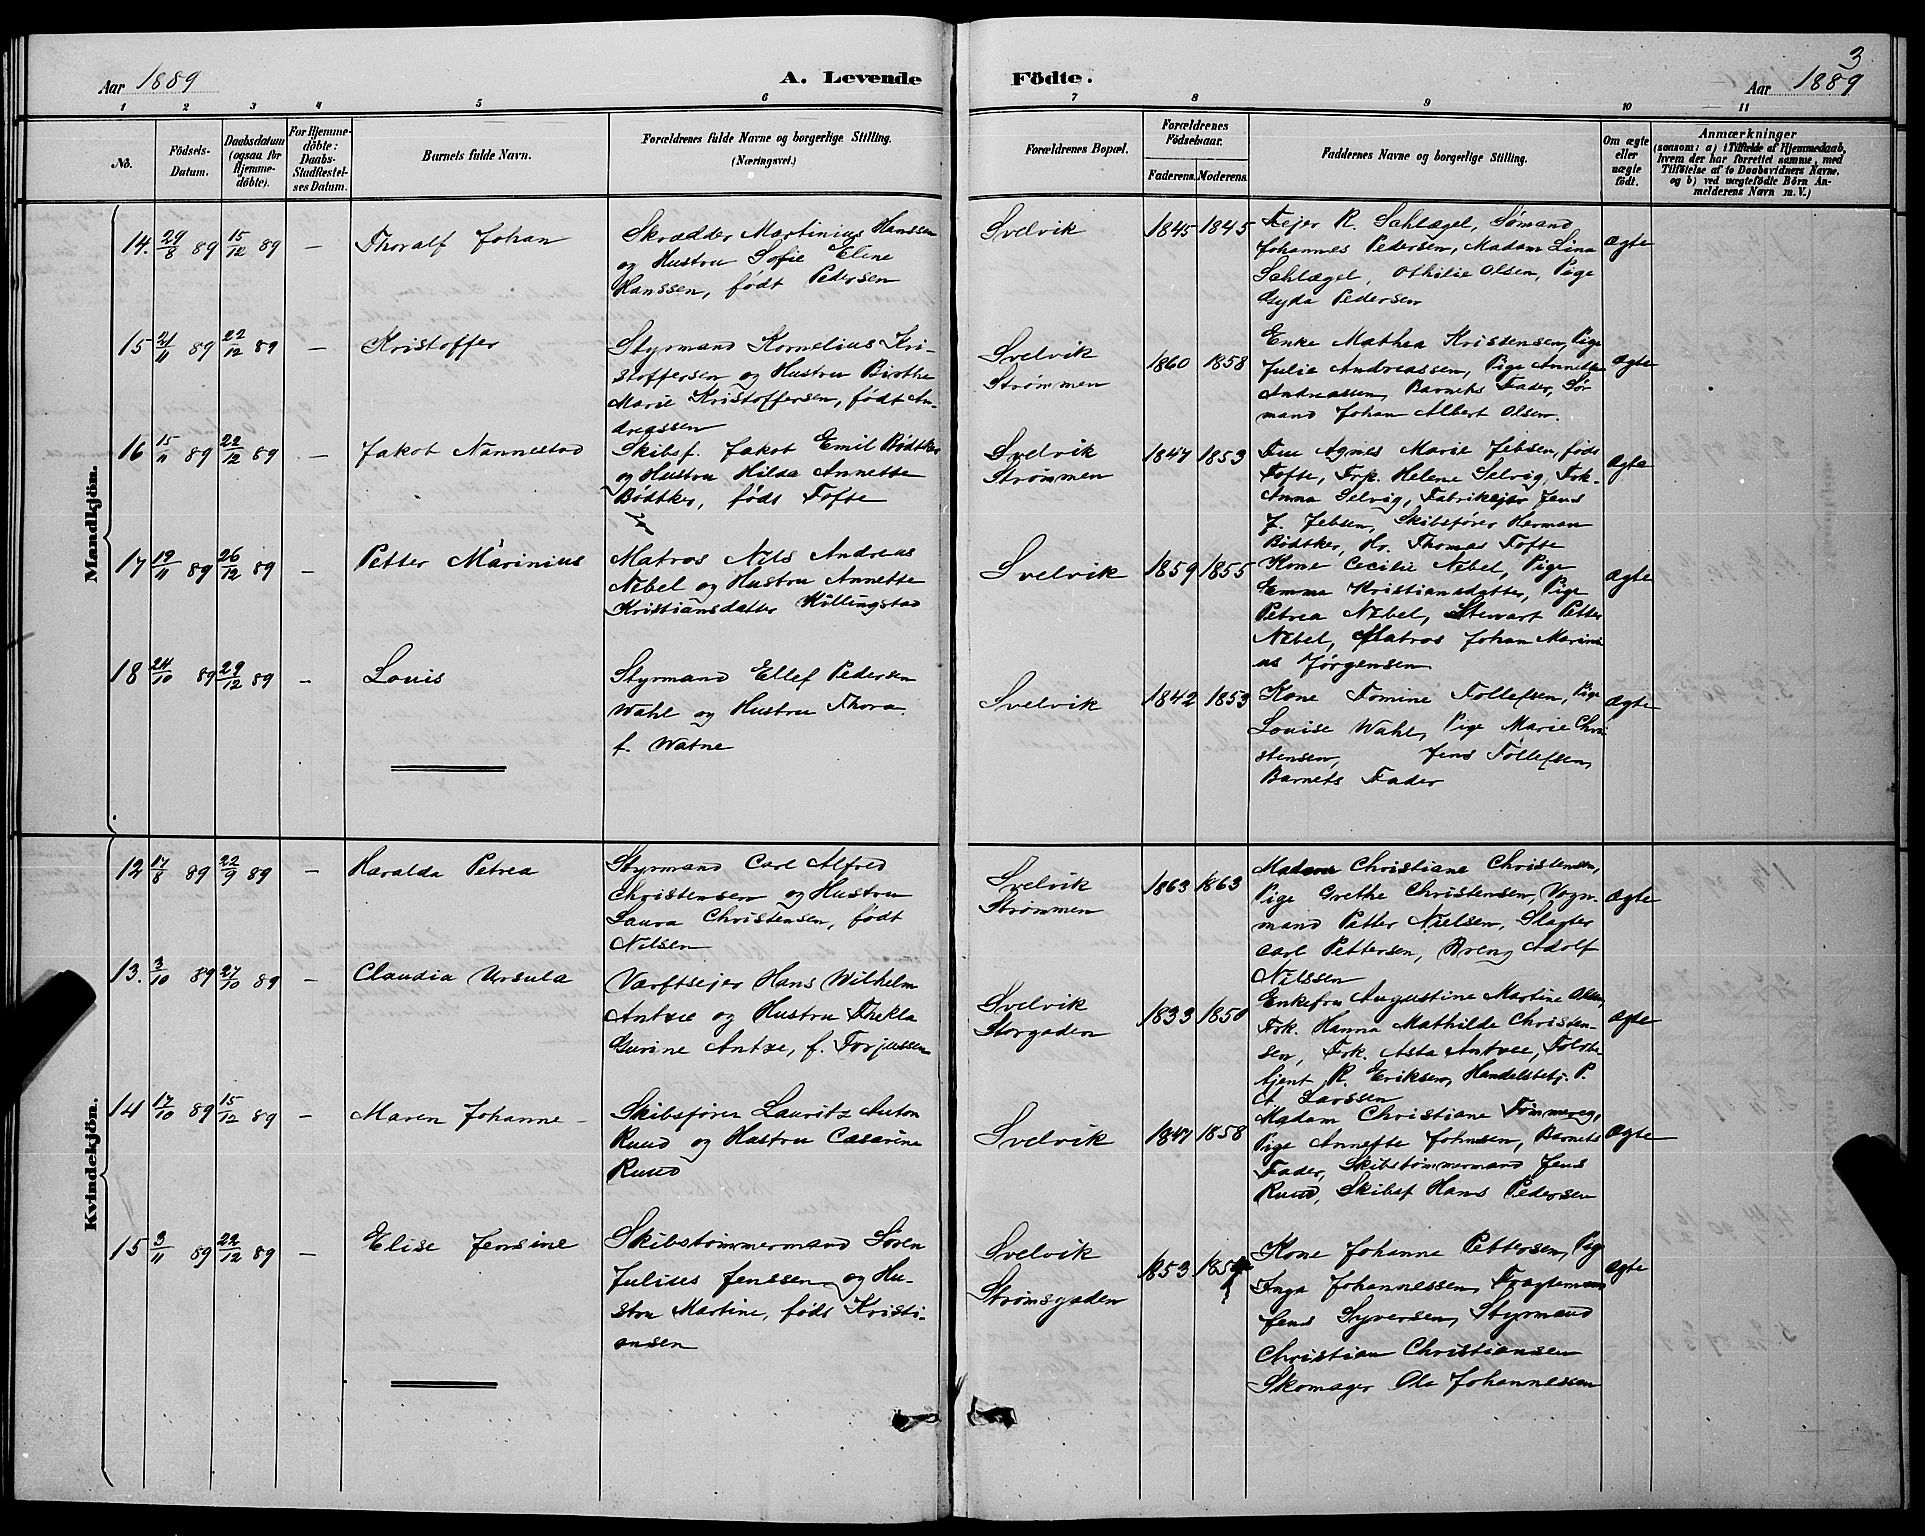 Aar 1889
A. Levende
Födte.
3
Aar 1889
1 2 3 4 5 6 7 8 9 10 11
No.
Födsels-
Datum.
Daabsdatum
(ogsaa for
Hjemme-
döbte).
For Hjemme-
döbte:
Daabs-
Stadfæstel-
ses Datum.
Barnets fulde Navn.
Forældrenes fulde Navne og borgerlige Stilling.
(Næringsvei.)
Forældrenes Bopæl.
Forældrenes
Födselsaar.
Faderens. Moderens.
Faddernes Navne og borgerlige Stilling.
Om ægte
eller
uægte
födt.
Anmærkninger
(saasom: a) i Tilfælde af Hjemmedaab,
hvem der har forrettet samme, med
Tilföielse af to Daabsvidners Navne,
og b) ved uægtefödte Börn An-
melderens Navn m. V.)
Mandkjön.
14. 29/8 89 15/12 89 — Thoralf Johan
Skrædder Martinius Hanssen
og Hustru Sofie Eline
Hanssen, født Pedersen
Svelvik
1845 1845
Feier R. Schlægel, Sømand
Johannes Pedersen, Madam Lina
Schlægel, Othilie Olsen, Pige
Gyda Pedersen
ægte
15 21/11 89 22/12 89 — Kristoffer
Styrmand Kornelius Kri-
stoffersen og Hustru Birthe
Marie Kristoffersen, født An-
dreassen
Svelvik
Strømmen
1860 1858
Enke Mathea Kristensen, Pige
Julie Andreassen, Pige Annette
Andreassen, Barnets Fader, Sø-
mand Johan Albert Olsen.
ægte
16 15/11 89 22/12 89 — Jakob Nannestad
Skibsf. Jakob Emil Bødtker
og Hustru Hilda Annette
Bødtker, født Tofte
Svelvik
Strømmen
1847 1853
Fru Agnes Marie Jebsen, født
Tofte, Frk. Helene Selvig, Frk.
Anna Selvig, Fabrikejer Jens
J. Jebsen, Skibsfører Herman
Bødtker, Hr. Thomas Tofte
ægte
17 19/11 89 26/12 89 — Petter Marinius
Matros Nils Andreas
Nebel og Hustru Annette
Kristiansdatter Killingstad
Svelvik
1859 1855
Kone Cecilie Nebel, Pige
Emma Kristiansdatter, Pige
Petrea Nebel, Stewart Petter
Nebel, Matros Johan Marini
us Jørgensen
ægte
18 24/10 89 29/12 89 — Louis
Styrmand Ellef Pedersen
Wahl og Hustru Thora
f. Watne
Svelvik
1842 1853
Kone Tomine Tollefsen, Pige
Louise Wahl, Pige Marie Chri
stensen, Jens Tollefsen,
Barnets Fader
ægte
Kvindekjön.
12 17/8 89 22/9 89 — Haralda Petrea
Styrmand Carl Alfred
Christensen og Hustru
Laura Christensen, født
Nilsen
Svelvik
Strømmen
1863 1863
Madam Christiane Christensen,
Pige Grethe Christensen, Vogn-
mand Petter Nielsen, Slagter
Carl Pettersen, Dreng Adolf
Nilssen
ægte
13. 3/10 89 27/10 89 — Claudia Ursula
Værftsejer Hans Wilhelm
Antxe og Hustru Thekla
Gurine Antxe, f. Torjussen
Svelvik
Storgaden
1833 1850
Enkefru Augustine Martine Olsen,
Frk. Hanna Mathilde Christen-
sen, Frk. Asta Antxe,
R. Eriksen, Handelsbetj. P.
A. Larssen
ægte
14 17/10 89 15/12 89 — Maren Johanne
Skibsfører Lauritz Anton
Ruud og Hustru Cæsarine
Ruud
Svelvik
1847 1858
Madam Christiane
Pige Annette Johnsen, Barnets
Fader, Skibstømmermand Jens
Ruud, Skibsf Hans Pedersen
ægte
15 3/11 89 22/12 89 — Elise Jensine
Skibstømmermand Søren
Julius Jenssen og Hu-
stru Martine, født Kristi-
ansen
Svelvik
Strømsgaden
1853
Kone Johanne Pettersen, Pig
Inga Johannessen, Fragtemand
Jens Syversen, Styrmand
Christian Christiansen
Skomager Ole Johannessen
ægte